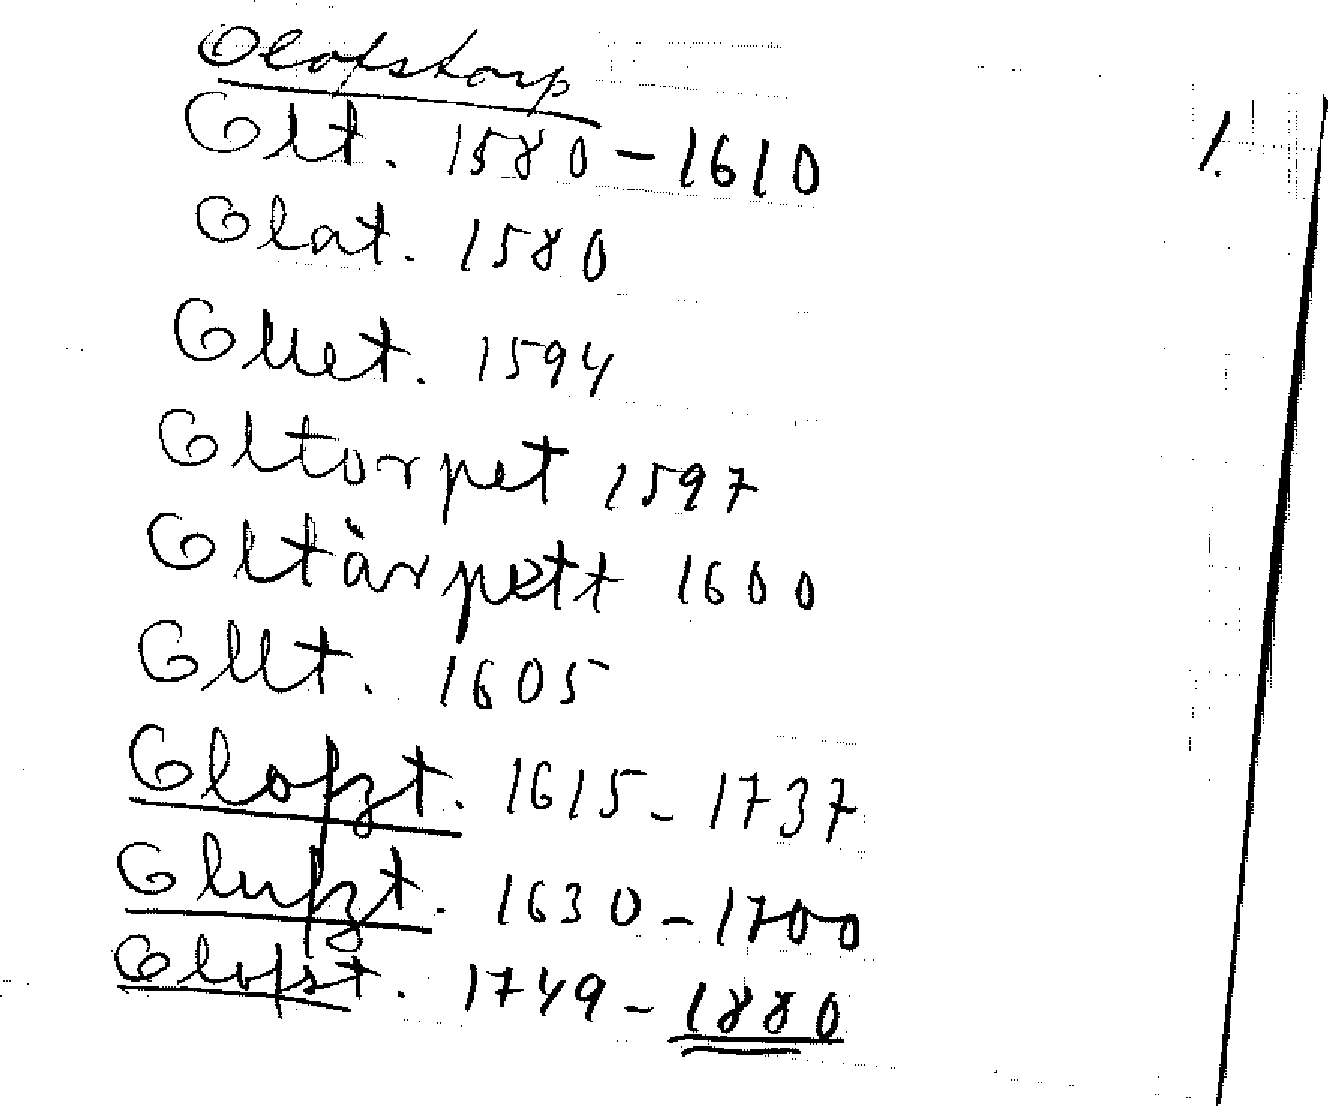 Olofstorp
1.
Olt. 1580-1610
Olat. 1580
Ollet. 1594
Oltorpet 1597
Oltårpett 1600
Ollt. 1605
Olofzt. 1615-1737
Olufzt. 1630-1700
Olofst. 1749-1880